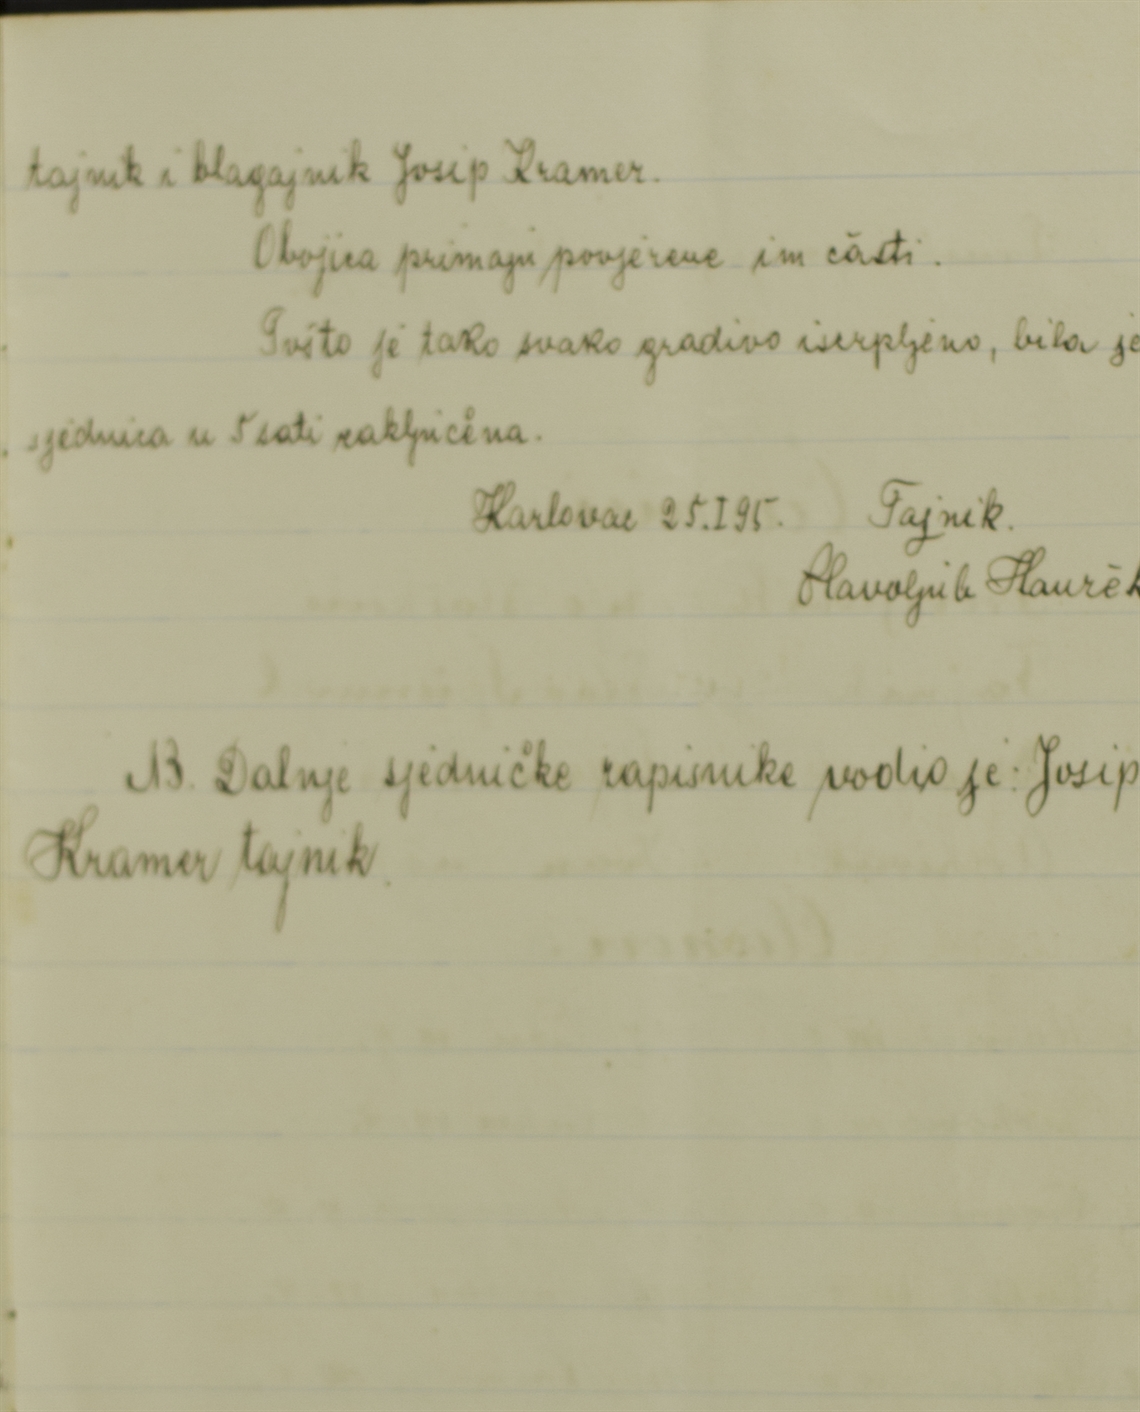 tajnik i blagajnik Josip Kramer.
Obojica primaju povjerene im části.
Pošto je tako svako gradivo iscrpljeno, bila je
sjednica u 5 sati zaključena.
Karlovac 25.I 95. Tajnik.
Slavoljub
NB. Dalnje sjedničke zapisnike vodio je: Josip
Kramer tajnik.